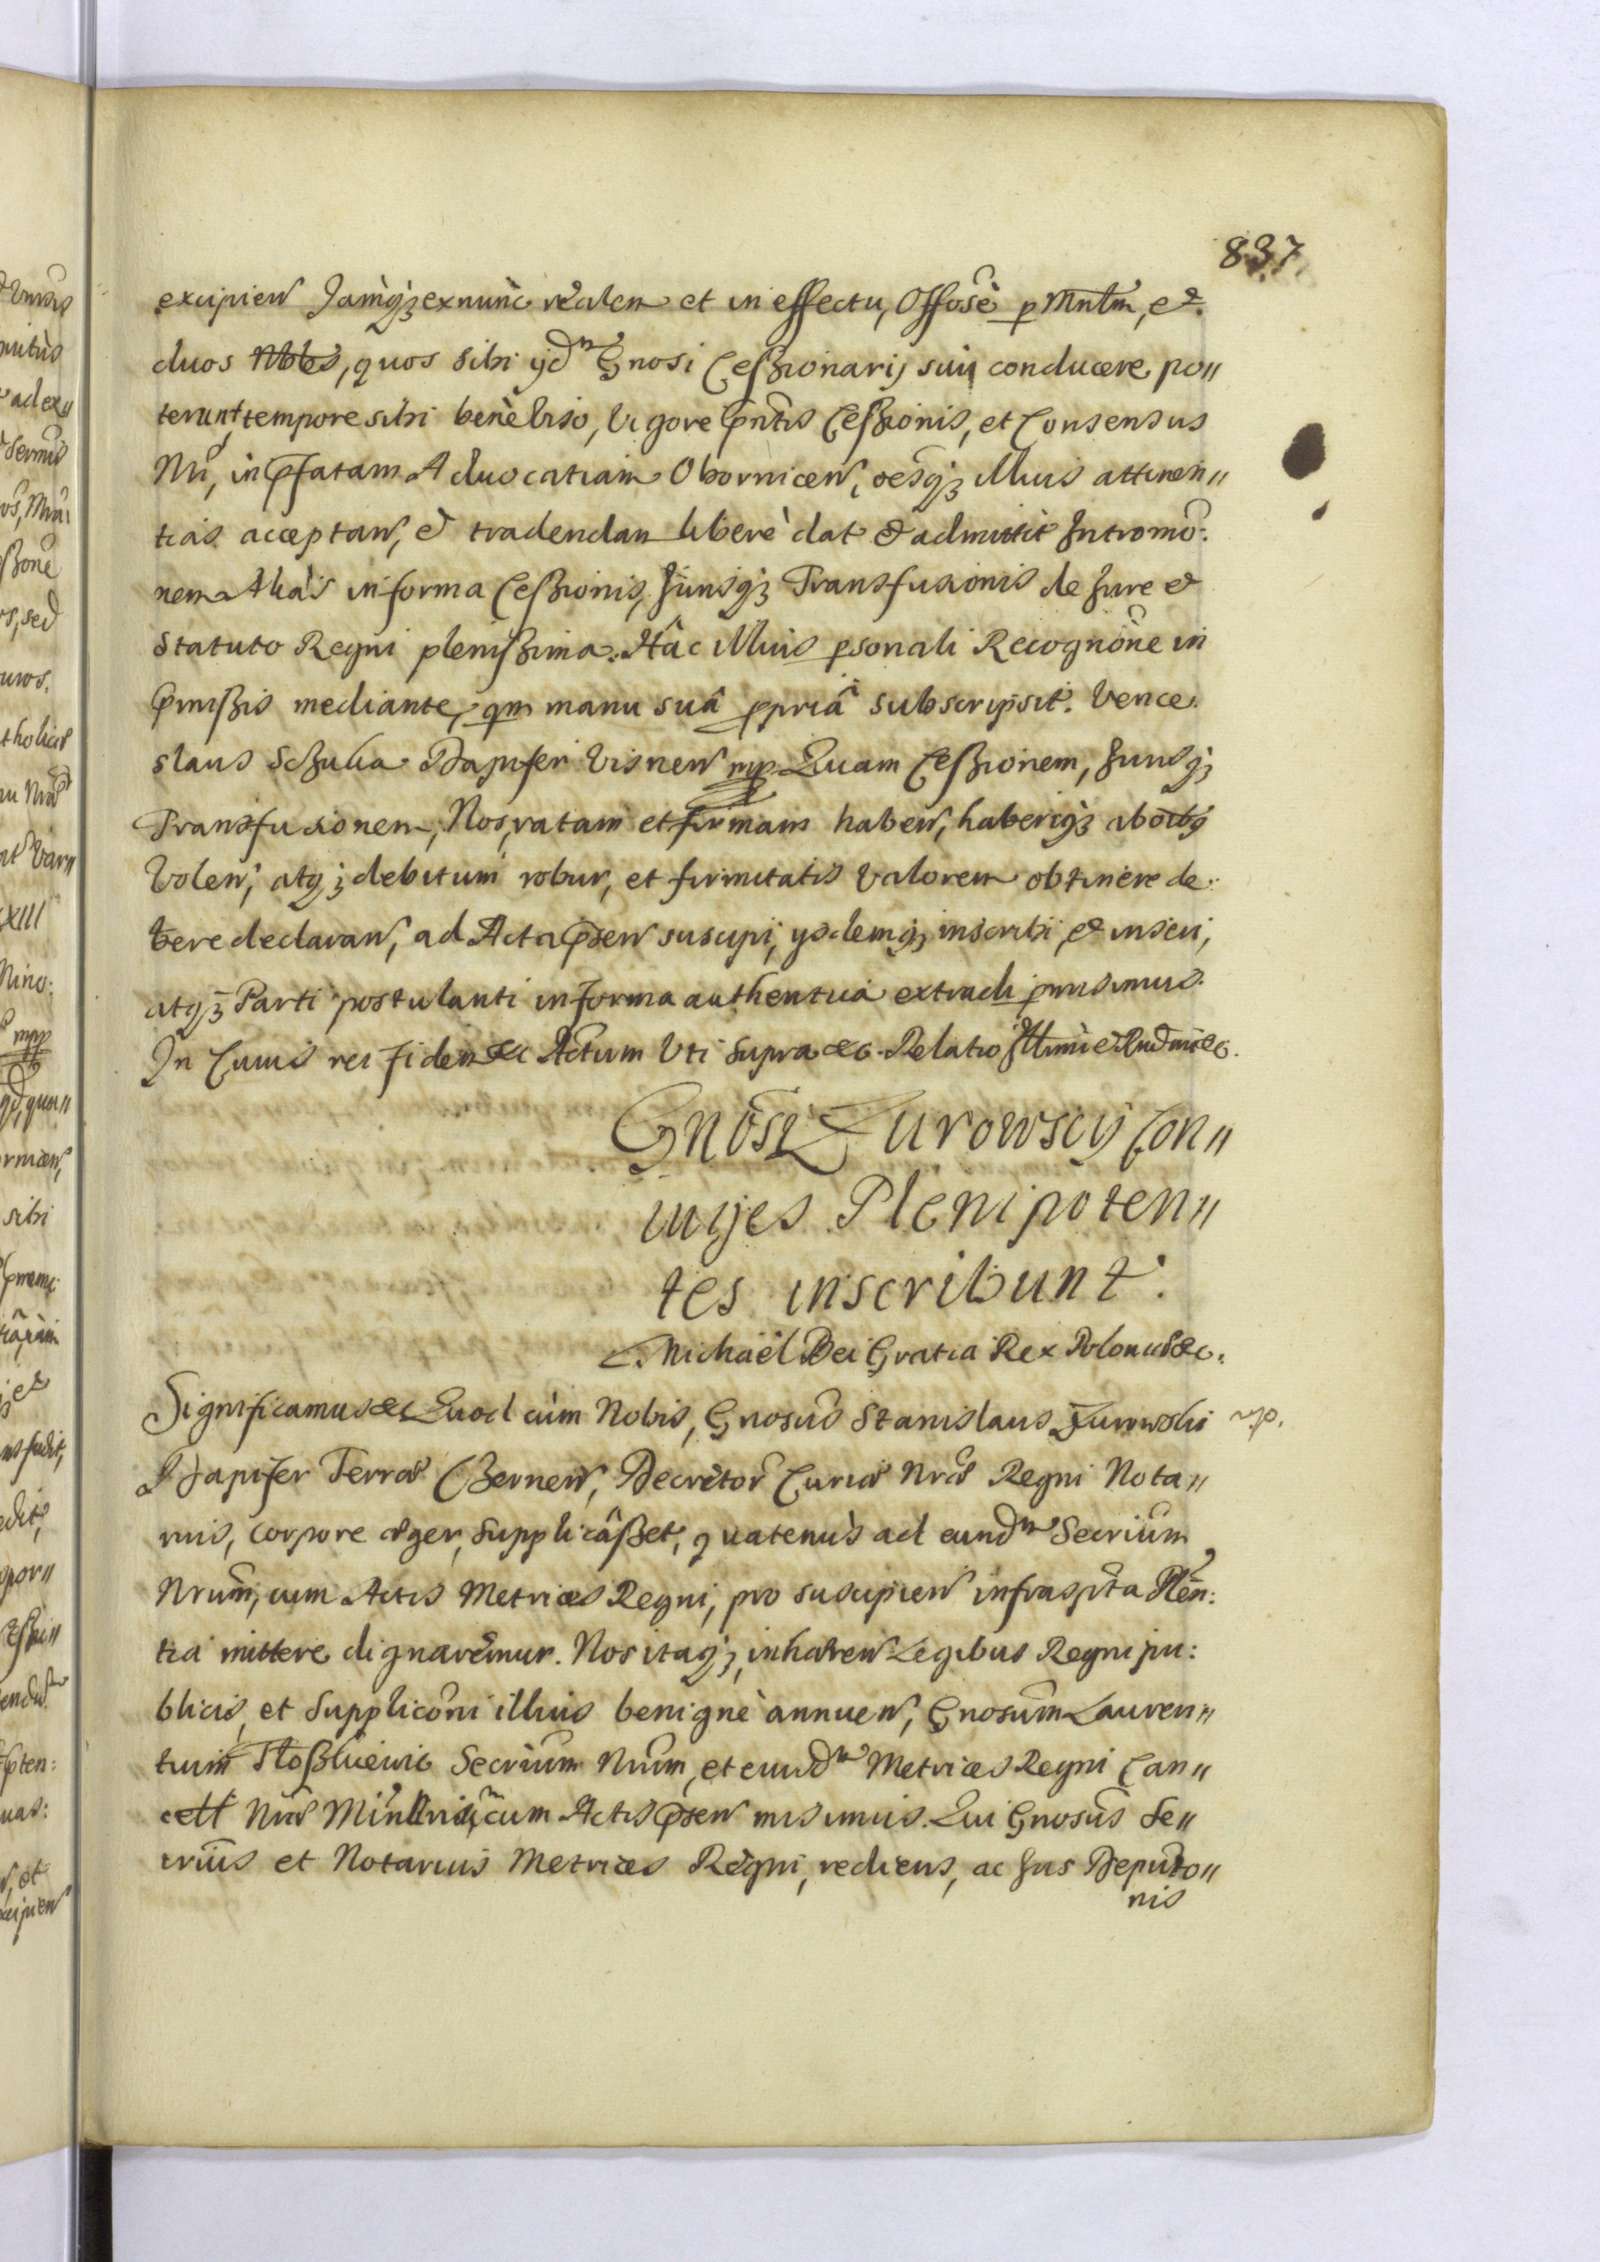 837
excipien Jamq; ex nunc realem et in effectu, Offose p Mnlm, et
duos Nobles, quos sibi ijdm Gnosi Ceßionarij sui conducere po„
terunt, tempore sibi benè viso, Vigore pntis Ceßionis, et Consensus
Nri, in pfatam Aduocatiam Obornicen, oesq; illius attinen„
tias acceptan, et tradendam liberè dat et admittit Intromo:
nem Aliàs in forma Ceßionis, Jurisq; Transfusionis de Jure et
Statuto Regni plenißima. Hâc illius psonali Recognone in
pmißis mediante, qm manu suâ ppriâ subscripsit. Vence
slaus Schulia Dapifer Visnen mp Quam Ceßionem, Jurisq;
Transfusionem, Nos, ratam et firmam haben, haberiq; ab oibq
Volen, atq; debitum robur, et firmitatis Valorem obtinere de:
bere declaran, ad Acta psen suscipi, ysdemq; inscribi, et inseri,
atq; Parti postulanti in forma authentica extradi pmisimus.
In Cuius rei fidem &c Actum Vti supra &c. Relatio Illmi et Rndmi &c.
Gnosi Zurowscij Con„
iuges Plenipoten„
tes inscribunt.
Michaël Dei Gratia Rex Poloniæ &c.
Significamus &c Quod cùm Nobis, Gnosus Stanislaus Zurowski
Dapifer Terræ Czernen, Decretor Curiæ Nræ Regni Nota„
rius, corpore æger, supplicâßet, quatenùs ad eundm Secrium
Nrum, cum Actis Metrices Regni, pro suscipien infrascpta Plen:
tia mittere dignaremur. Nos itaq; inhæren Legibus Regni pu:
blicis, et Suppliconi illius benignè annuen, Gnosum Lauren„
tium Secrium Nrum, et eiusdm Metrices Regni Can„
cell Nræ Minlris, cum Actis psen misimus. Qui Gnosus Se„
crius et Notarius Metrices Regni, rediens, ac suæ Deputo„
nis